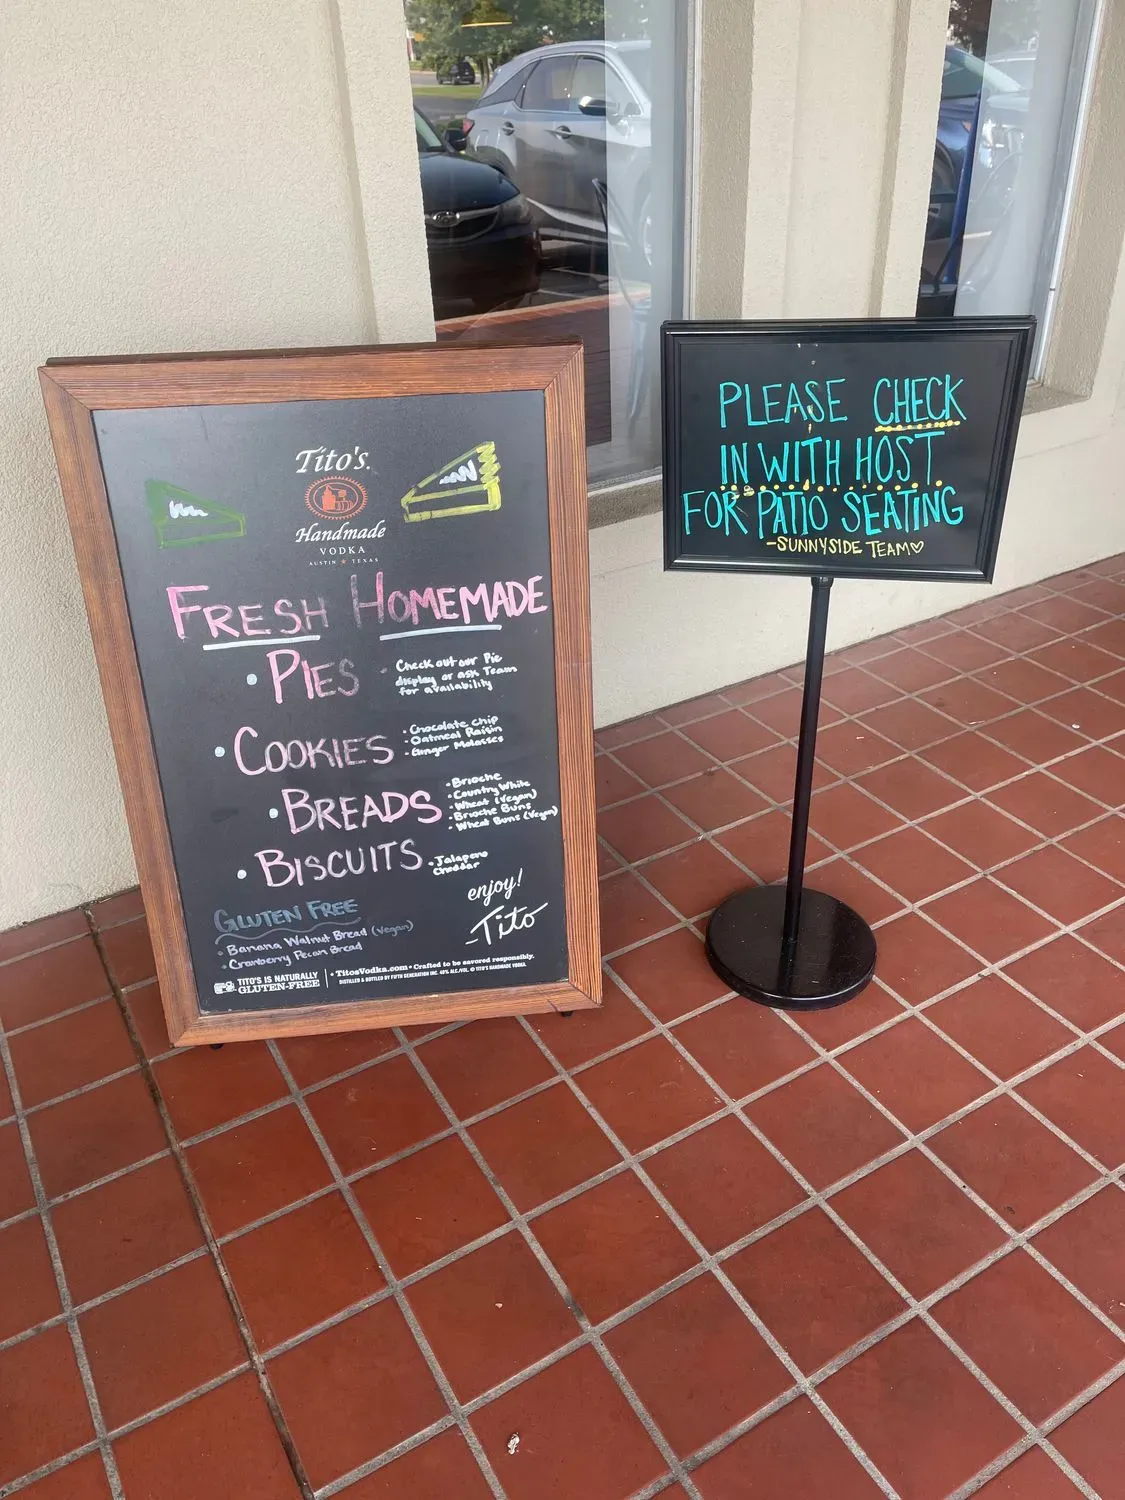 Tito's.
Handmade
VODKA
AUSTIN ★ TEXAS
FRESH HOMEMADE
• PIES
- Check out our Pie
display or ask Team
for availability
• COOKIES
• Chocolate Chip
• Oatmeal Raisin
• Ginger Molasses
• BREADS
• Brioche
• Country White
• Wheat (Vegan)
• Brioche Buns
• Wheat Buns (Vegan)
• BISCUITS
• Jalapeno
Cheddar
GLUTEN FREE
• Banana Walnut Bread (Vegan)
• Cranberry Pecan Bread
enjoy!
-Tito
TITO'S IS NATURALLY
GLUTEN-FREE
• TitosVodka.com • Crafted to be savored responsibly.
DISTILLED & BOTTLED BY FIFTH GENERATION INC. 40% ALC./VOL. © TITO'S HANDMADE VODKA.
PLEASE CHECK
IN WITH HOST
FOR PATIO SEATING
-SUNNYSIDE TEAM♡